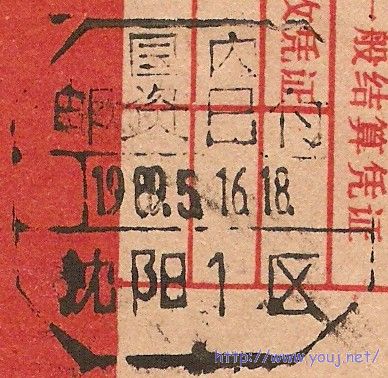 国内
邮资已付
1989.5.16.18.
沈阳1区
般结算凭证
凭证
http://www.youj.net/